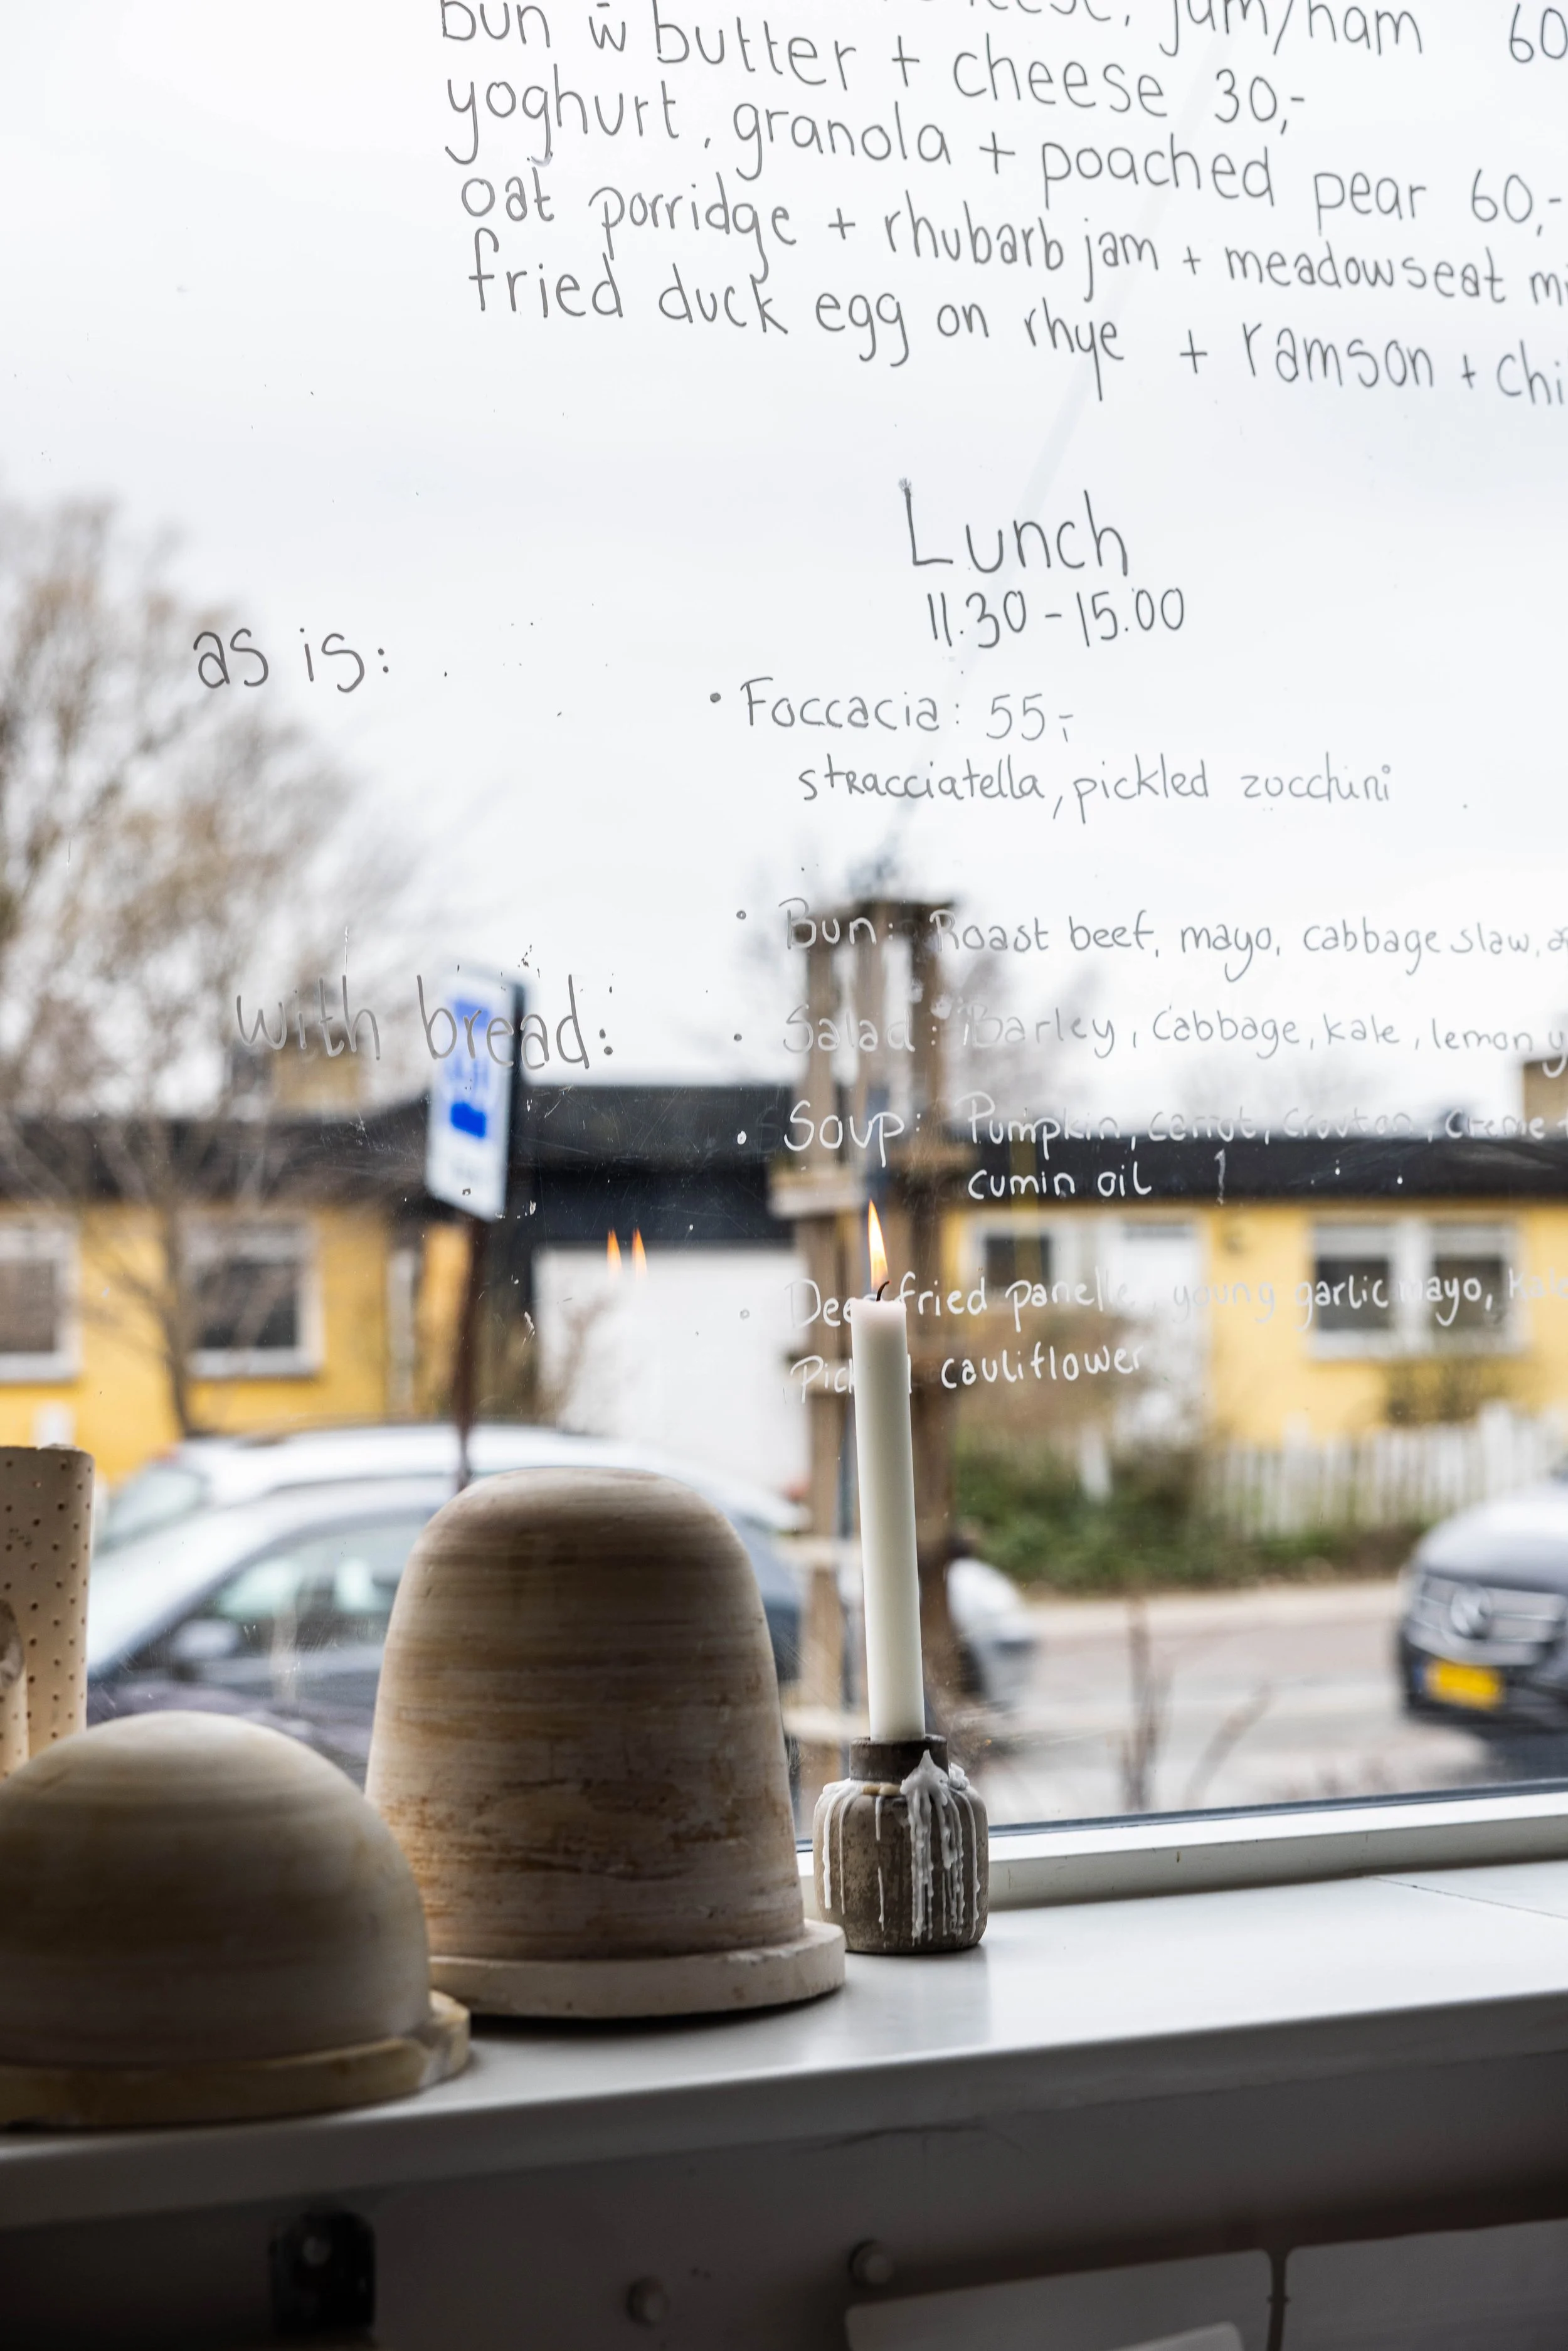 jam/ham 60
bun w̄ butter + cheese 30,-
yoghurt, granola + poached pear 60,-
oat porridge + rhubarb jam + meadowseat
fried duck egg on rhye + ramson +
Lunch
11.30 - 15.00
as is:
• Foccacia: 55,-
stracciatella, pickled zocchini
• Bun: Roast beef, mayo, cabbage slaw,
with bread:
• Salad: Barley, Cabbage, kale, lemon
• Soup: Pumpkin, carrot, crouton, Creme +
cumin oil
• fried panelle, young garlic mayo,
cauliflower